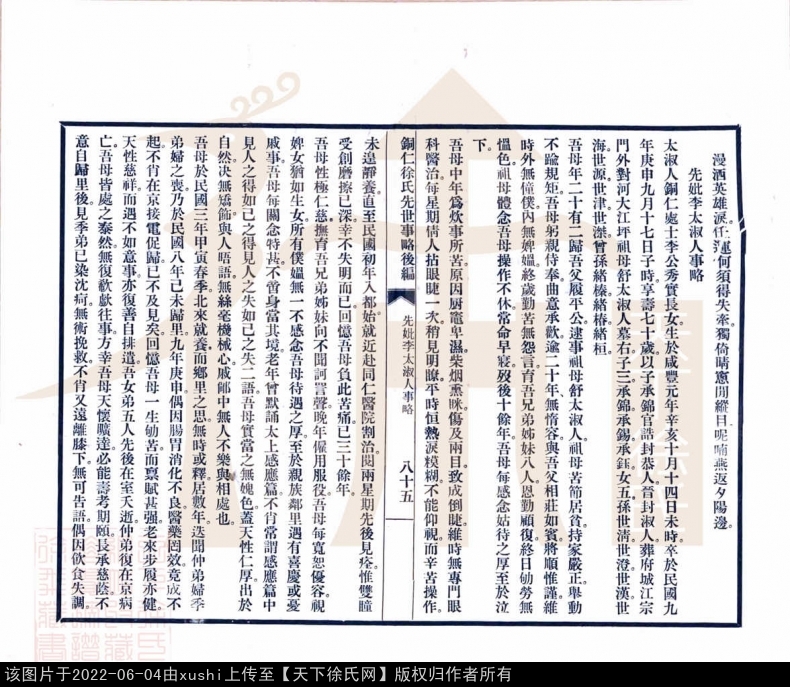 漫洒英雄淚任運何須得失牽獨倚晴窻閒縱目呢喃燕返夕陽邊。
先妣李太淑人事略
太淑人銅仁處士李公秀實長女生於咸豐元年辛亥十月十四日未時卒於民國九
年庚申九月十七日子時享壽七十歲以子承錦官誥封恭人晉封淑人葬府城江宗
門外對河大江坪祖母舒太淑人墓右子三承錦承錫承鈺女五孫世清世澄世漢世
海世源世津世濚曾孫緒榛緒椿緒桓。
吾母年二十有二歸吾父履平公逮事祖母舒太淑人祖母苦節居貧持家嚴正舉動
不踰規矩吾母躬親侍奉曲意承歡逾二十年無惰容與吾父相莊如賓將順惟謹維
時外無僮僕內無婢媼終歲勤苦無怨言育吾兄弟姊妹八人恩勤顧復終日劬勞無
慍色祖母體念吾母操作不休常命早寢歿後十餘年吾母每感念姑待之厚至於泣
下。
吾母中年爲炊事所苦原因厨竈卑濕柴烟熏眯傷及兩目致成倒睫維時無專門眼
科醫治每星期倩人拈眼睫一次稍見明瞭平時恒熱淚糢糊不能仰視而辛苦操作
銅仁徐氏先世事略後編
先妣李太淑人事略
八十五
未遑靜養直至民國初年入都始就近赴同仁醫院割治閱兩星期先後見痊惟雙瞳
受創磨擦已深幸不失明而已回憶吾母負此苦痛已三十餘年。
吾母性極仁慈撫育吾兄弟姊妹向不聞訶詈聲晚年僱用服役吾母每寬恕優容視
婢女猶如生女所有僕媼無一不感念吾母待遇之厚至於親族鄰里遇有喜慶或憂
戚事吾母每關念特甚不啻身當其境老年曾默誦太上感應篇不肖常謂感應篇中
見人之得如己之得見人之失如己之失二語吾母實當之無媿色蓋天性仁厚出於
自然決無矯飾與人晤語無絲毫機械心戚鄰中無人不樂與相處也。
吾母於民國三年甲寅春季北來就養而鄉里之思無時或釋居數年迭聞仲弟婦季
弟婦之喪乃於民國八年己未歸里九年庚申偶因腸胃消化不良醫藥罔效竟成不
起不肖在京接電促歸已不及見矣回憶吾母一生劬苦而禀賦甚强老來步履亦健
天性慈祥而遇不如意事亦復善自排遣吾女弟五人先後在室夭逝仲弟復在京病
亡吾母皆處之泰然無復欷歔往事方幸吾母天懷曠達必能壽考期頤長承慈蔭不
意自歸里後見季弟已染沈疴無術挽救不肖又遠離膝下無可告語偶因飲食失調。
该图片于2022-06-04由xushi上传至【天下徐氏网】版权归作者所有